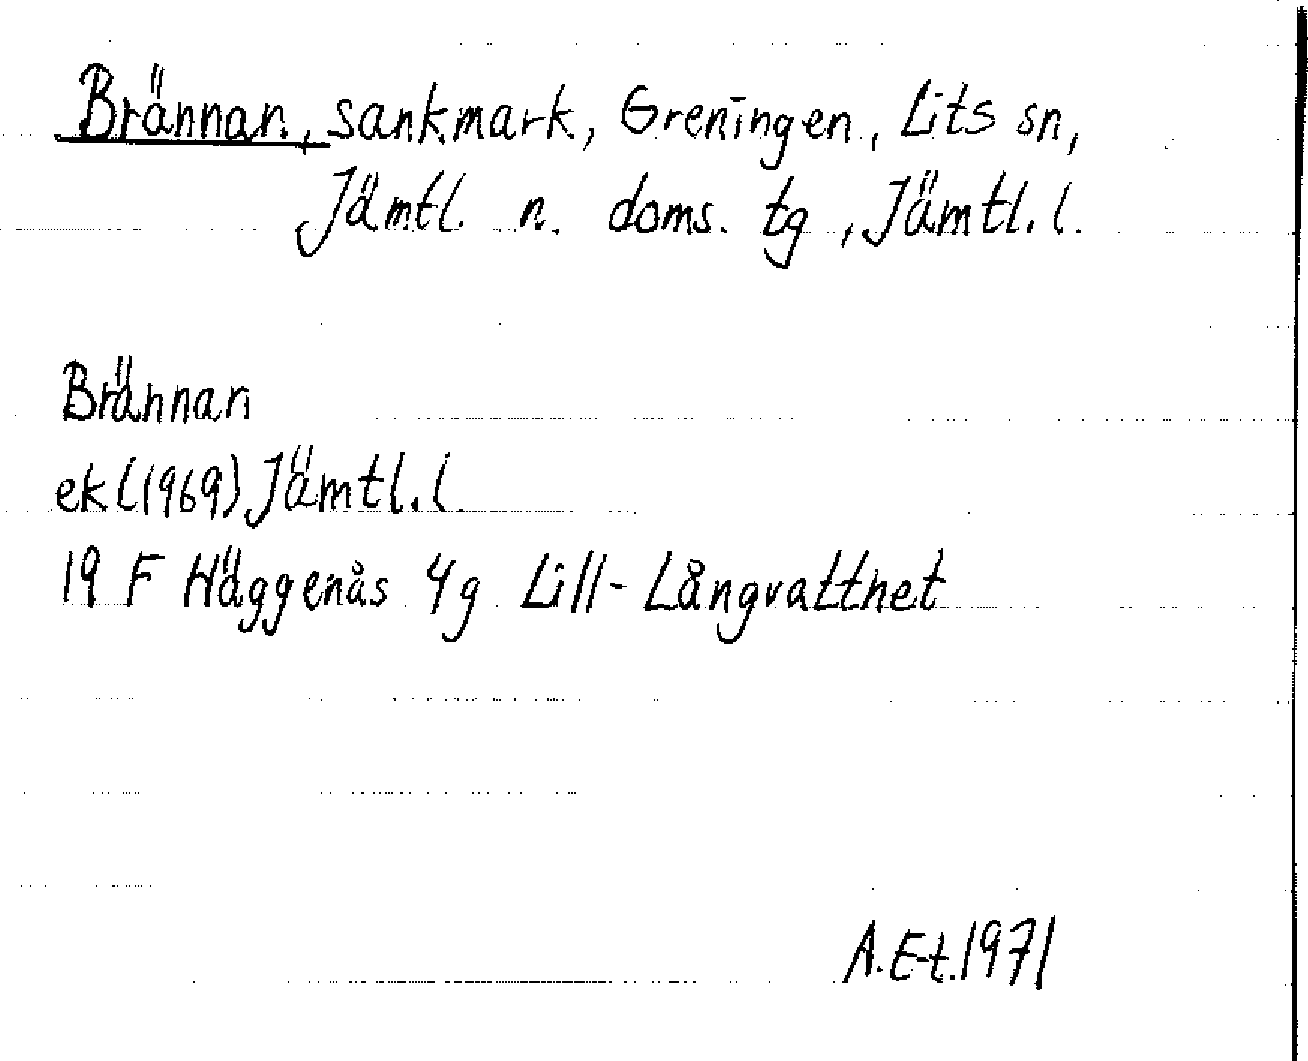 Brännan, sankmark, Greningen, Lits sn,
Jämtl. n. doms. tg, Jämtl. l.
Brännan
ek (1969) Jämtl. l.
19 F Häggenås 4g Lill-Långvattnet
A. E-t. 1971